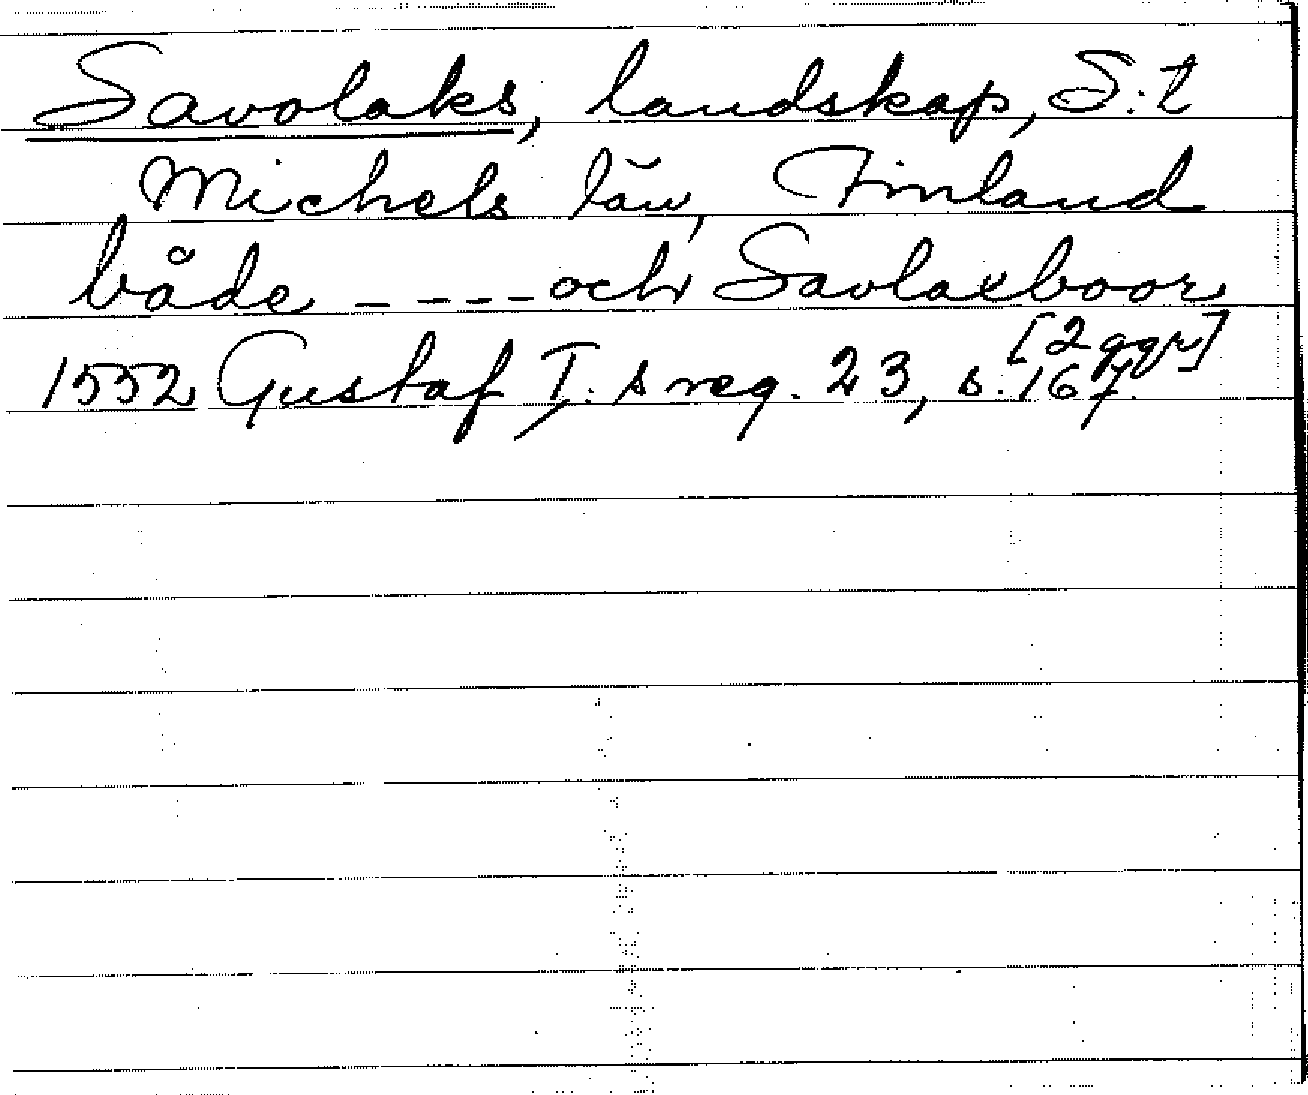 Savolaks, landskap, S:t
Michels län, Finland
både ---- och Savlaxboor
[2 ggr]
1552 Gustaf I:s reg. 23, s. 167.